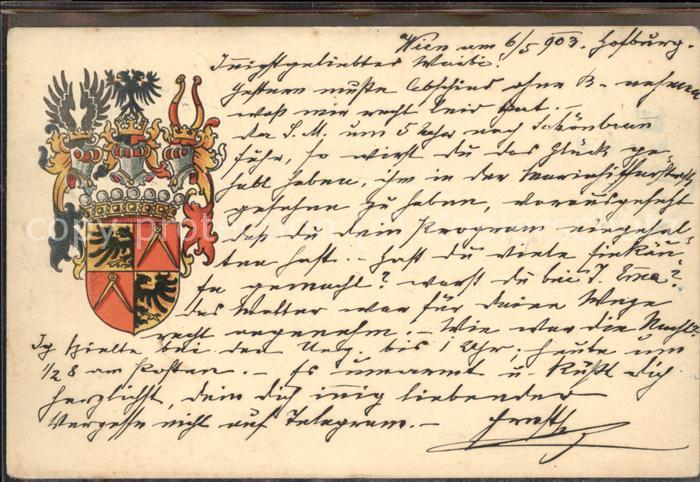 Wien am 6/5 903. Hofburg.
Innigstgeliebtes Weibi!
Gestern mußte Abschied ohne B. nehmen
was mir recht leid tat. –
Da S. M. um 5 Uhr nach Schönbrun
fuhr, so wirst du das Glück ge
habt haben, ihm in der Mariahilferstraße
gesehen zu haben, vorausgesetzt
daß du dein Program eingehal
ten hast. – Hast du viele Einkäu
fe gemacht? warst du bei T. Erna?
Das Wetter war für deine Wege
recht angenehm. – Wie war die Nacht?
Ich hielte bei den bis 1 Uhr; heute um
1/2 8 am Posten. – Es umarmt u. küßt dich
herzlichst, dein dich innig liebender
Vergesse nicht auf Telegram. – Ernst